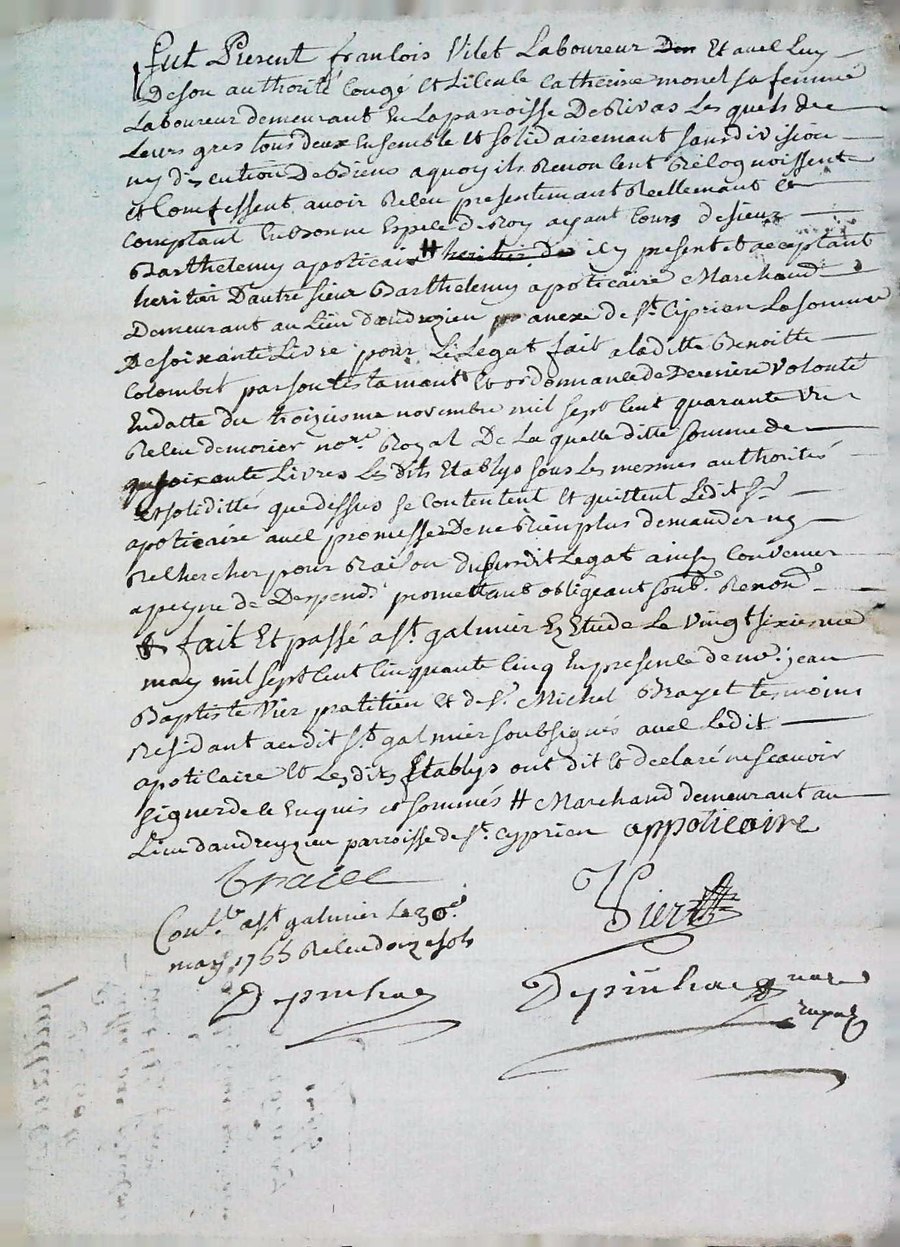 fut Present francois Vilet Laboureur Don Et avec Luy
De son authorité Congé et Licence Catherine monel sa femme
Laboureur demeurant En La parroisse De Rivas Les quels de
Leurs gres tous deux Ensemble et solidairemant sans division
ny discution De biens a quoy ils Renoncent Recognoissent
et Confessent avoir Receu presentemant Reellemant et
Comptant En bonne Espece de Roy ayant Cours de sieur
Barthelemy apoticaire # heritier de icy present et acceptant
heritier Dautre sieur Barthelemy apoticaire Marchand
Demeurant au Lieu dandrezieu anexe de St. Ciprien La somme
De soixante Livre pour Le Legat fait a laditte Benoitte
Colombet par son testamant et ordonnance de Derniere volonté
En datte du troizieme novembre mil sept Cent quarante
Receu de morier nore. Royal De La quelle ditte somme de
soixante Livres Les dits Etablys sous Les mesmes authorités
et solidittés que dessus se Contentent et quittent Ledit Sr.
apoticaire avec promesse De ne Rien plus demander ny
Rechercher pour Raison du susdit Legat ainsy Convenu
a peyne de Despend. promettant obligeant soub. Renon.
fait Et passé a St. galmier Ez Etude Le Vingt sixieme
may mil sept Cent Cinquante Cinq En presence de me. jean
Baptiste Vier pratitien et de Sr. Michel Brayet temoins
Residant audit St. galmier soubsignés avec Ledit
apoticaire et Les dits Etablys ont dit et declaré ne scavoir
signer de ce Enquis et sommés # Marchand demeurant au
Lieu dandrezieu parroisse de St. Cyprien appoticaire
Vier
Conlé. a St. galmier Le 30e.
may 1755 Receu douze sols
Depinhac
Depinhac nore
royal